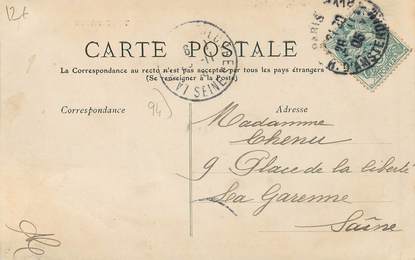 12€
CARTE POSTALE
La Correspondance au recto n'est pas acceptée par tous les pays étrangers
(Se renseigner à la Poste)
Correspondance
94)
Adresse
PARIS
R. D'AMSTERDAM
LA
SEINE
Madamme
Chenu
9 Place de la liberté
La Garenne
Saîne